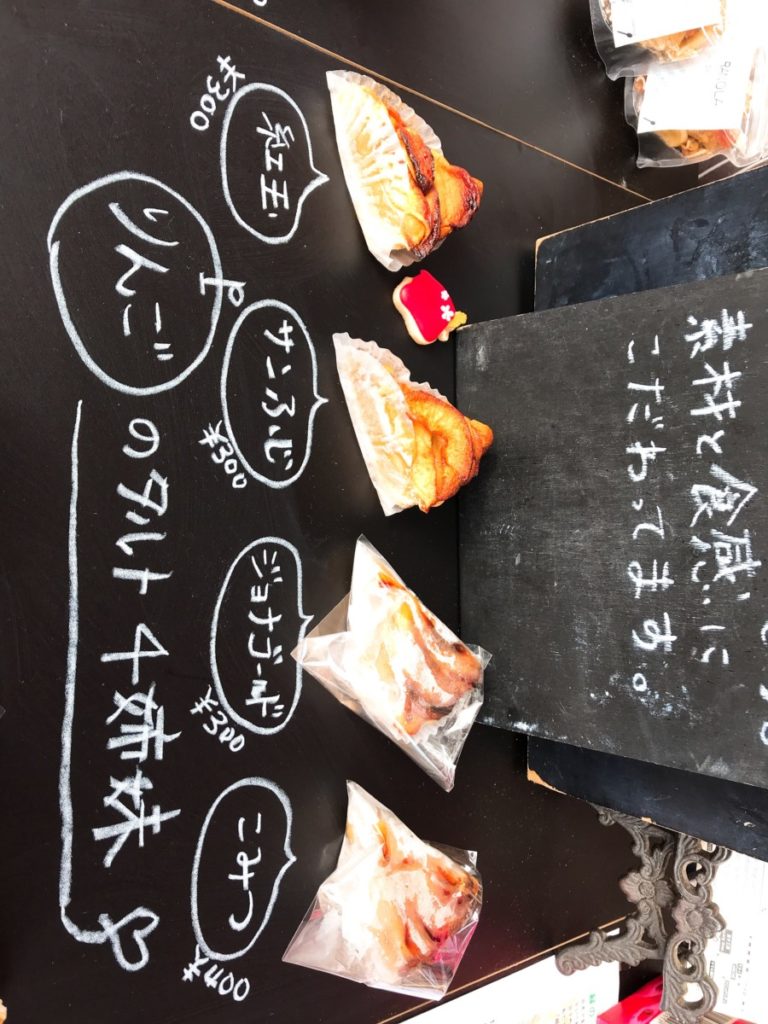 素材と食感に
こだわってます。
紅玉
¥300
サンふじ
¥300
ジョナゴールド
¥300
こみつ
りんご
のタルト4姉妹